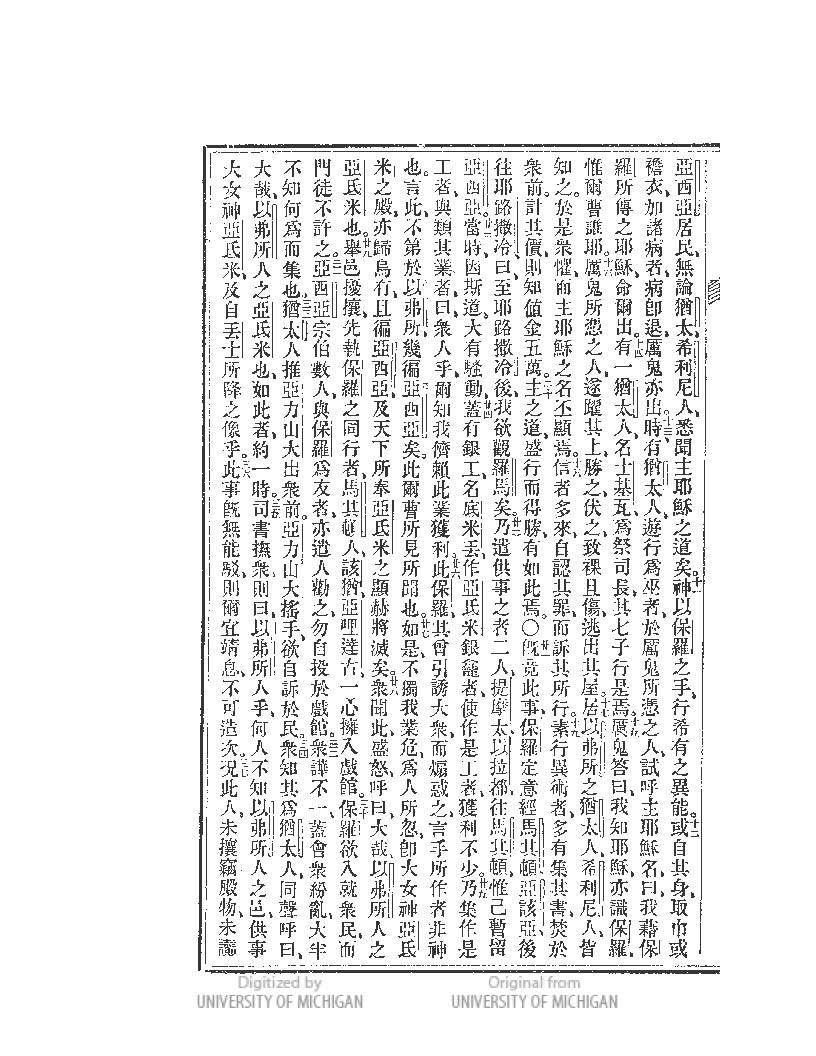 亞西亞居民、無論猶太希利尼人、悉聞主耶穌之道矣。十一神以保羅之手、行希有之異能。十二或自其身、取巾或
襜衣、加諸病者、病卽退、厲鬼亦出。十三時有猶太人、遊行爲巫者、於厲鬼所憑之人、試呼主耶穌名曰、我藉保
羅所傳之耶穌、命爾出。十四有一猶太人、名士基瓦、爲祭司長、其七子行是焉。十五厲鬼答曰、我知耶穌、亦識保羅、
惟爾曹誰耶。十六厲鬼所憑之人、遂躍其上、勝之伏之、致裸且傷、逃出其屋。十七居以弗所之猶太人、希利尼人、皆
知之。於是衆懼、而主耶穌之名丕顯焉。十八信者多來、自認其罪、而訴其所行。十九素行異術者、多有集其書、焚於
衆前、計其價、則知値金五萬。二十主之道、盛行而得勝、有如此焉。〇廿一旣竟此事、保羅定意、經馬其頓、亞該亞、後
往耶路撒冷、曰、至耶路撒冷後、我欲觀羅馬矣。廿二乃遣供事之者二人、提摩太、以拉都、往馬其頓、惟己暫留
亞西亞。廿三當時、因斯道、大有騷動、廿四蓋有銀工、名底米丢、作亞氐米銀龕者、使作是工者、獲利不少。廿五乃集作是
工者、與類其業者、曰、衆人乎、爾知我儕賴此業獲利。廿六此保羅、其曾引誘大衆、而煽惑之、言手所作者非神
也。言此、不第於以弗所、幾徧亞西亞矣、此爾曹所見所聞也。廿七如是、不獨我業危、爲人所忽、卽大女神亞氐
米之殿、亦歸烏有、且徧亞西亞、及天下所奉亞氐米之顯赫將滅矣。廿八衆聞此、盛怒、呼曰、大哉、以弗所人之
亞氐米也。廿九舉邑擾攘、先執保羅之同行者、馬其頓人、該猶、亞哩達古、一心擁入戲館。三十保羅欲入就衆民、而
門徒不許之。三一亞西亞宗伯數人、與保羅爲友者、亦遣人勸之、勿自投於戲館。三二衆譁不一、蓋會衆紛亂、大半
不知何爲而集也。三三猶太人推亞力山大出衆前。亞力山大搖手、欲自訴於民。三四衆知其爲猶太人、同聲呼曰、
大哉、以弗所人之亞氐米也、如此者、約一時。三五司書撫衆、則曰、以弗所人乎、何人不知以弗所人之邑、供事
大女神亞氐米、及自丢士所降之像乎。三六此事旣無能駁、則爾宜靖息、不可造次。三七況此人、未攘竊殿物、未謗